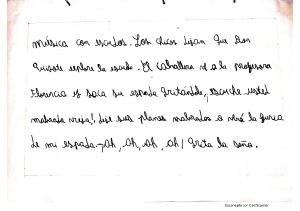 música con escudos. Los chicos dejan que Don
Quijote explore la escuela. El caballero ve a la profesora
Florencia y saca su espada gritándole, escuche usted
malvada bruja! deje sus planes malvados o verá la furia
de mi espada - Ah, Ah, Ah, Ah! Grita la seño.
Escaneado con CamScanner